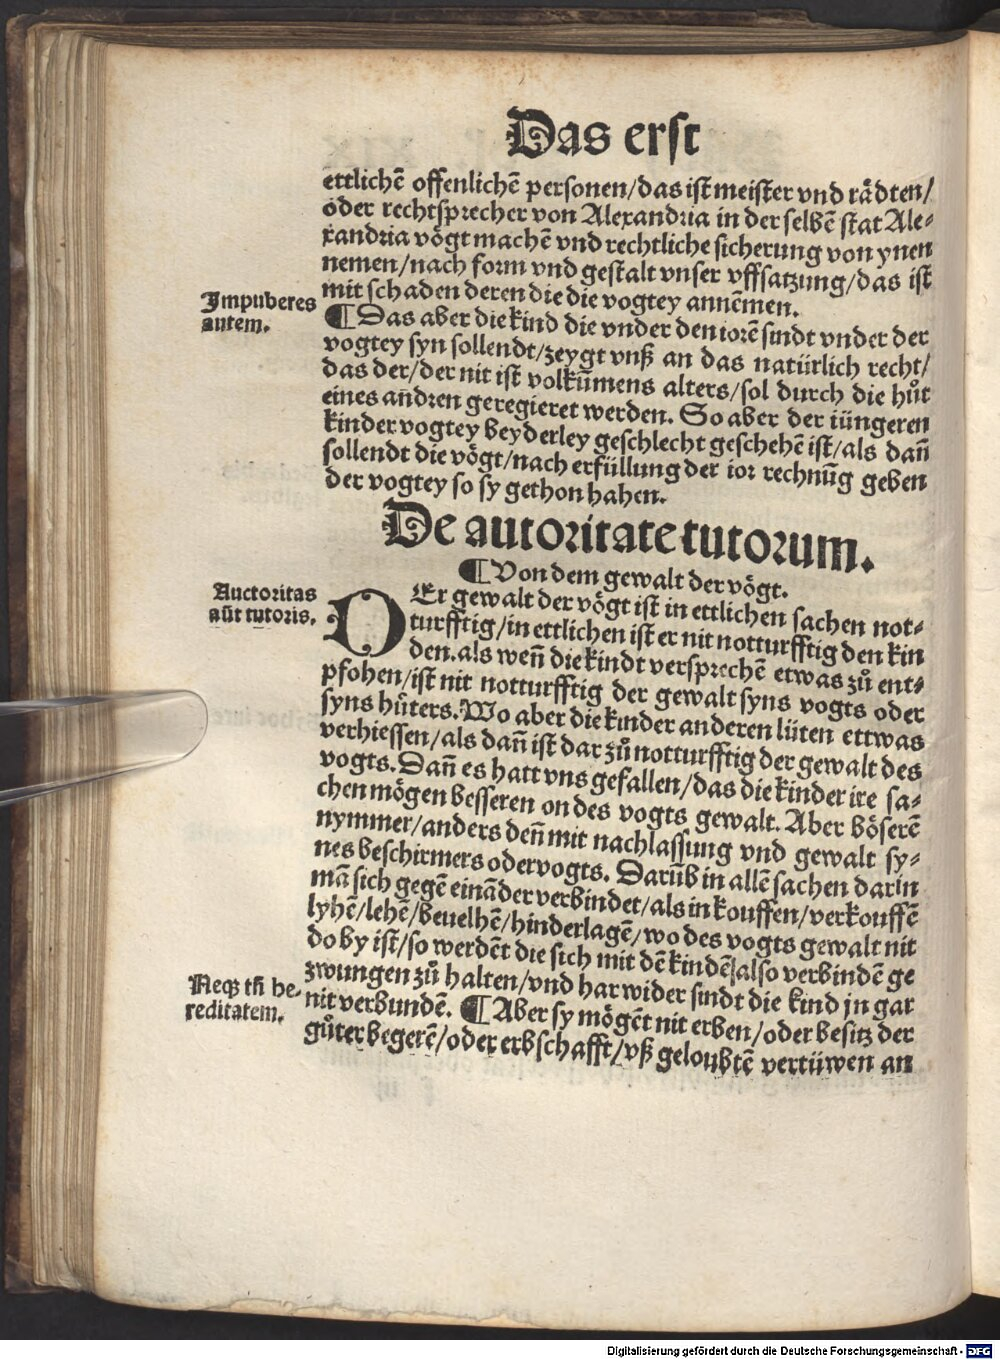 Das erst
ettlichē offenlichē personen/das ist meister vnd rådten/
oder rechtsprecher von Alexandria in der selbē stat Ale⸗
xandria vögt machē vnd rechtliche sicherung von ynen
nemen/nach form vnd gestalt vnser vffsatzung/das ist
mit schaden deren die die vogtey annēmen.
Impuberes
autem.
¶Das aber die kind die vnder den iorē sindt vnder der
vogtey syn sollendt/zeygt vnß an das natürlich recht/
das der/der nit ist volkūmens alters/sol durch die hůt
eines andren geregieret werden. So aber der iüngeren
kinder vogtey beyderley geschlecht geschehē ist/als dañ
sollendt die vögt/nach erfüllung der ior rechnūg geben
der vogtey so sy gethon haben.
De autoritate tutorum.
¶Von dem gewalt der vögt.
Auctoritas
aūt tutoris.
DEr gewalt der vögt ist in ettlichen sachen not⸗
turfftig/in ettlichen ist er nit notturfftig den kin
den. als weñ die kindt versprechē etwas zů ent⸗
pfohen/ist nit notturfftig der gewalt syns vogts oder
syns hůters. Wo aber die kinder anderen lüten ettwas
verhiessen/als dañ ist dar zů notturfftig der gewalt des
vogts. Dañ es hatt vns gefallen/das die kinder ire sa⸗
chen mögen besseren on des vogts gewalt. Aber böserē
nymmer/anders deñ mit nachlassung vnd gewalt sy⸗
nes beschirmers oder vogts. Darūb in allē sachen darin
mā sich gegē eināder verbindet/als in kouffen/verkouffē
lyhē/lehē/beuelhē/hinderlagē/wo des vogts gewalt nit
do by ist/so werdēt die sich mit dē kindē also verbindē ge
zwungen zů halten/vnd har wider sindt die kind jn gar
Neqꝫ tñ he-
reditatem.
nit verbundē. ¶Aber sy mögēt nit erben/oder besitz der
gůter begerē/oder erbschafft/vß geloubtē vertüwen an
Digitalisierung gefördert durch die Deutsche Forschungsgemeinschaft - DFG